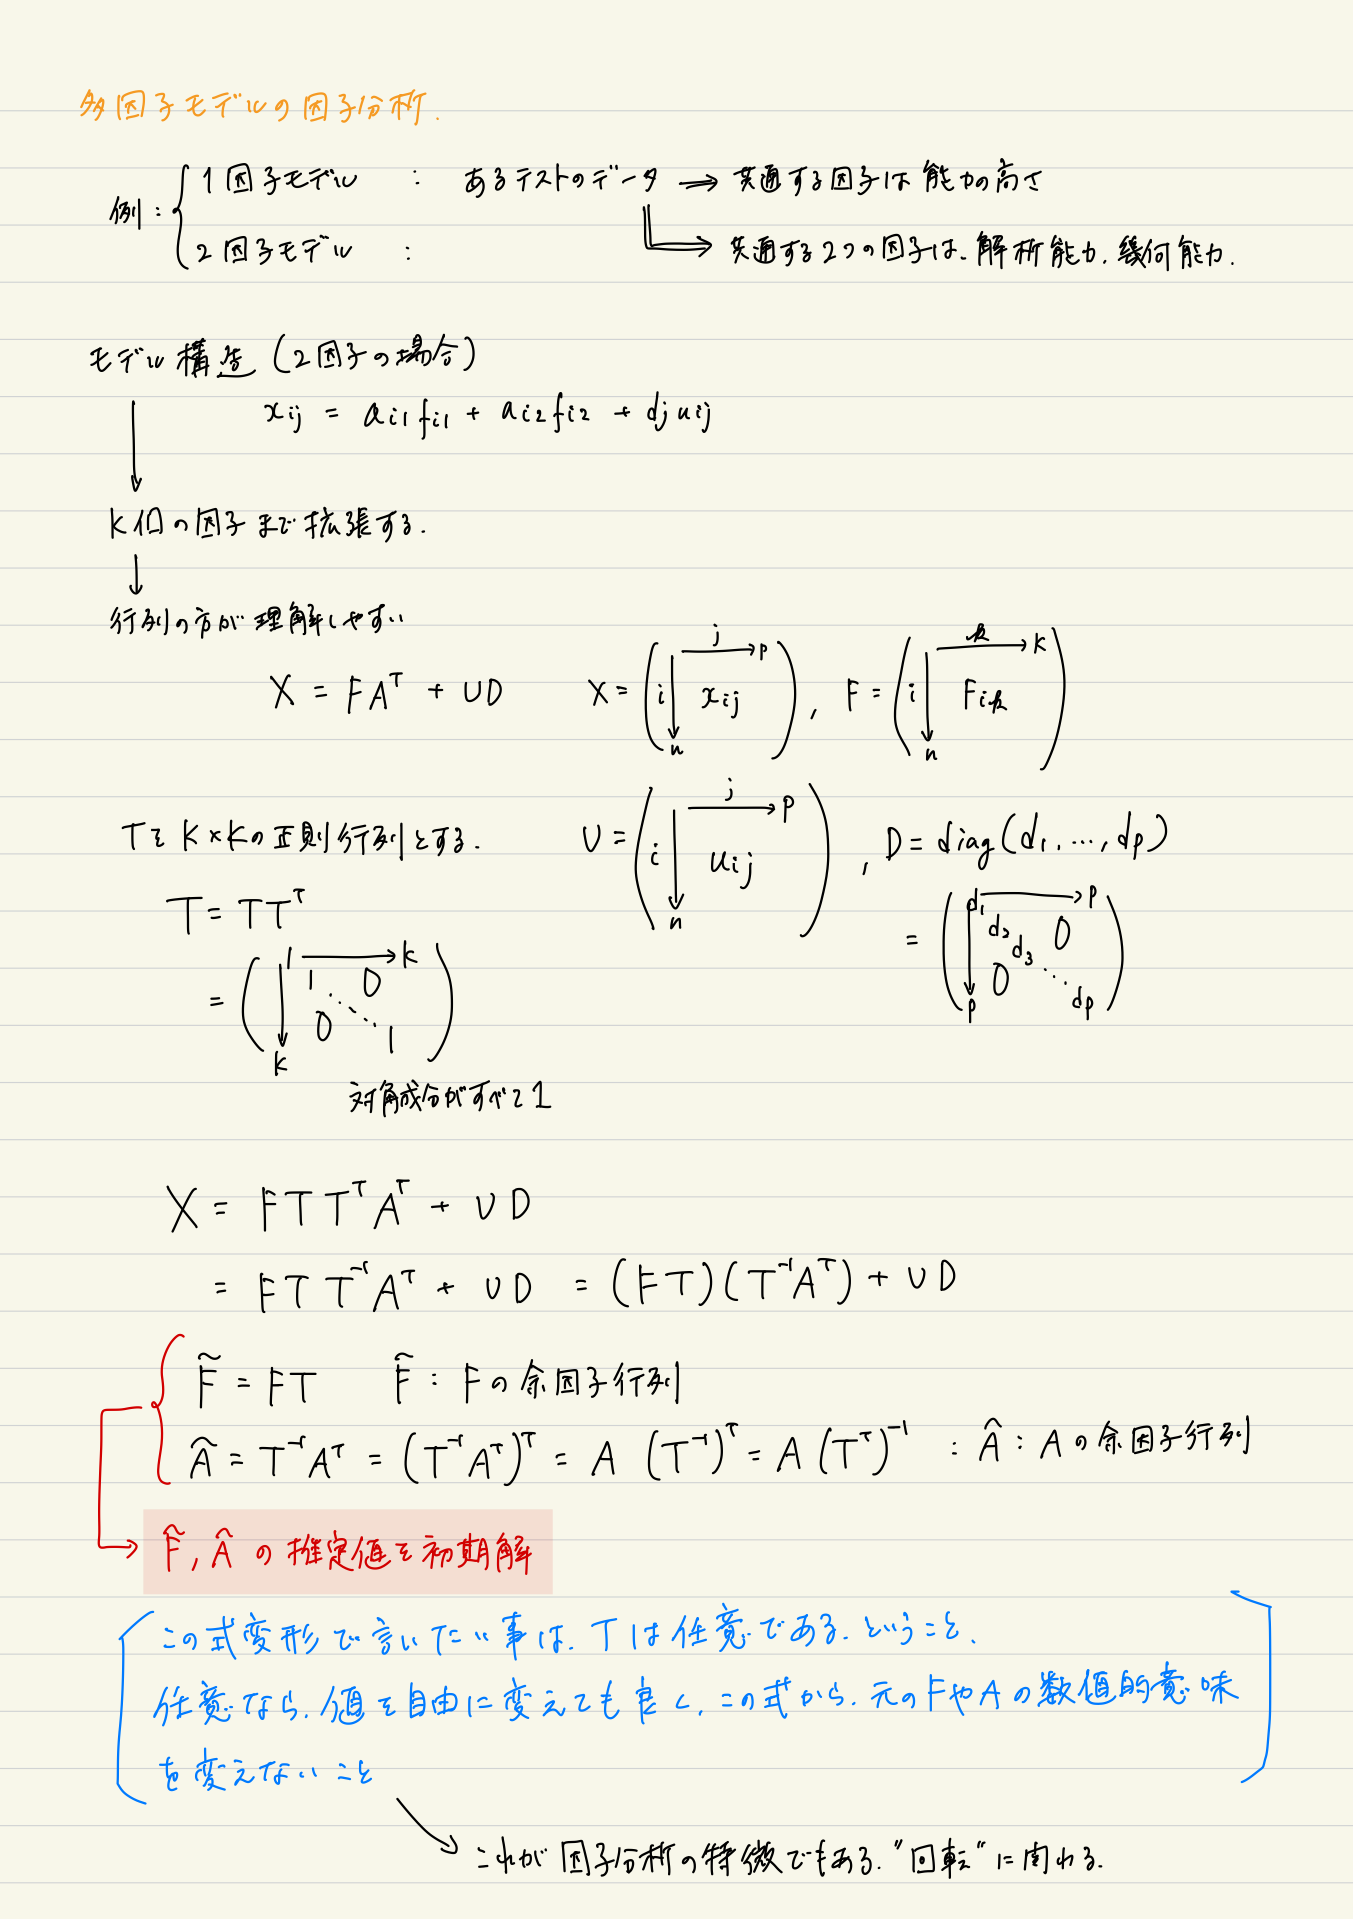 多因子モデルの因子分析.
例: { 1因子モデル : あるテストのデータ ⟹ 共通する因子は能力の高さ
2因子モデル : ⟹ 共通する2つの因子は、解析能力、幾何能力.
モデル構造 (2因子の場合)
xij = ai1 fi1 + ai2 fi2 + dj uij
↓
K個の因子まで拡張する.
↓
行列の方が理解しやすい
X = FA^T + UD X = ( i↓n j→p xij ) , F = ( i↓n k→K Fik )
TをK×Kの正則行列とする. U = ( i↓n j→p uij ) , D = diag(d1, ..., dp)
T = TT^T = ( d1 → p d2 d3 0 0 ⋱ dp ↓ p )
= ( 1 → k 1 0 0 ⋱ 1 ↓ k )
対角成分がすべて1
X = FTT^T A^T + UD
= FTT^-1 A^T + UD = (FT)(T^-1 A^T) + UD
F̃ = FT F̃ : Fの余因子行列
Ã = T^-1 A^T = (T^-1 A^T)^T = A (T^-1)^T = A (T^T)^-1 : Ã : Aの余因子行列
F̃, Ã の推定値を初期解
この式変形で言いたい事は、Tは任意である、ということ、
任意なら、値を自由に変えても良く、この式から、元のFやAの数値的意味
を変えないこと
これが因子分析の特徴でもある、"回転"に関わる.